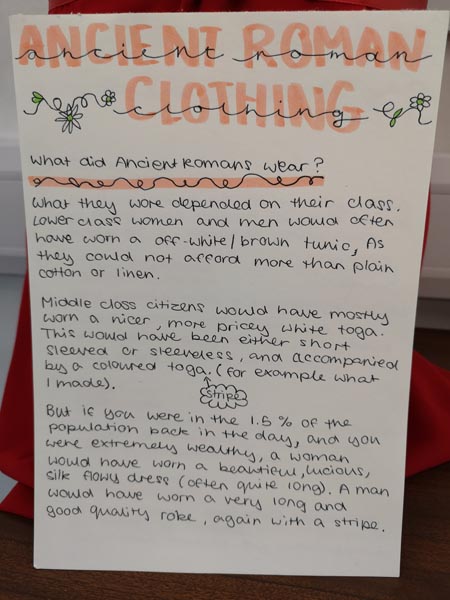 ANCIENT ROMAN
ancient roman
CLOTHING
clothing
What did Ancient Romans wear?
What they wore depended on their class.
Lower class women and men would often
have worn a off-white/brown tunic, As
they could not afford more than plain
cotton or linen.
Middle class citizens would have mostly
worn a nicer, more pricey white toga.
This would have been either short
sleeved or sleeveless, and accompanied
by a coloured toga. (for example what
I made).
stripe
But if you were in the 1.5% of the
population back in the day, and you
were extremely wealthy, a woman
would have worn a beautiful, lucious,
silk flowy dress (often quite long). A man
would have worn a very long and
good quality robe, again with a stripe.